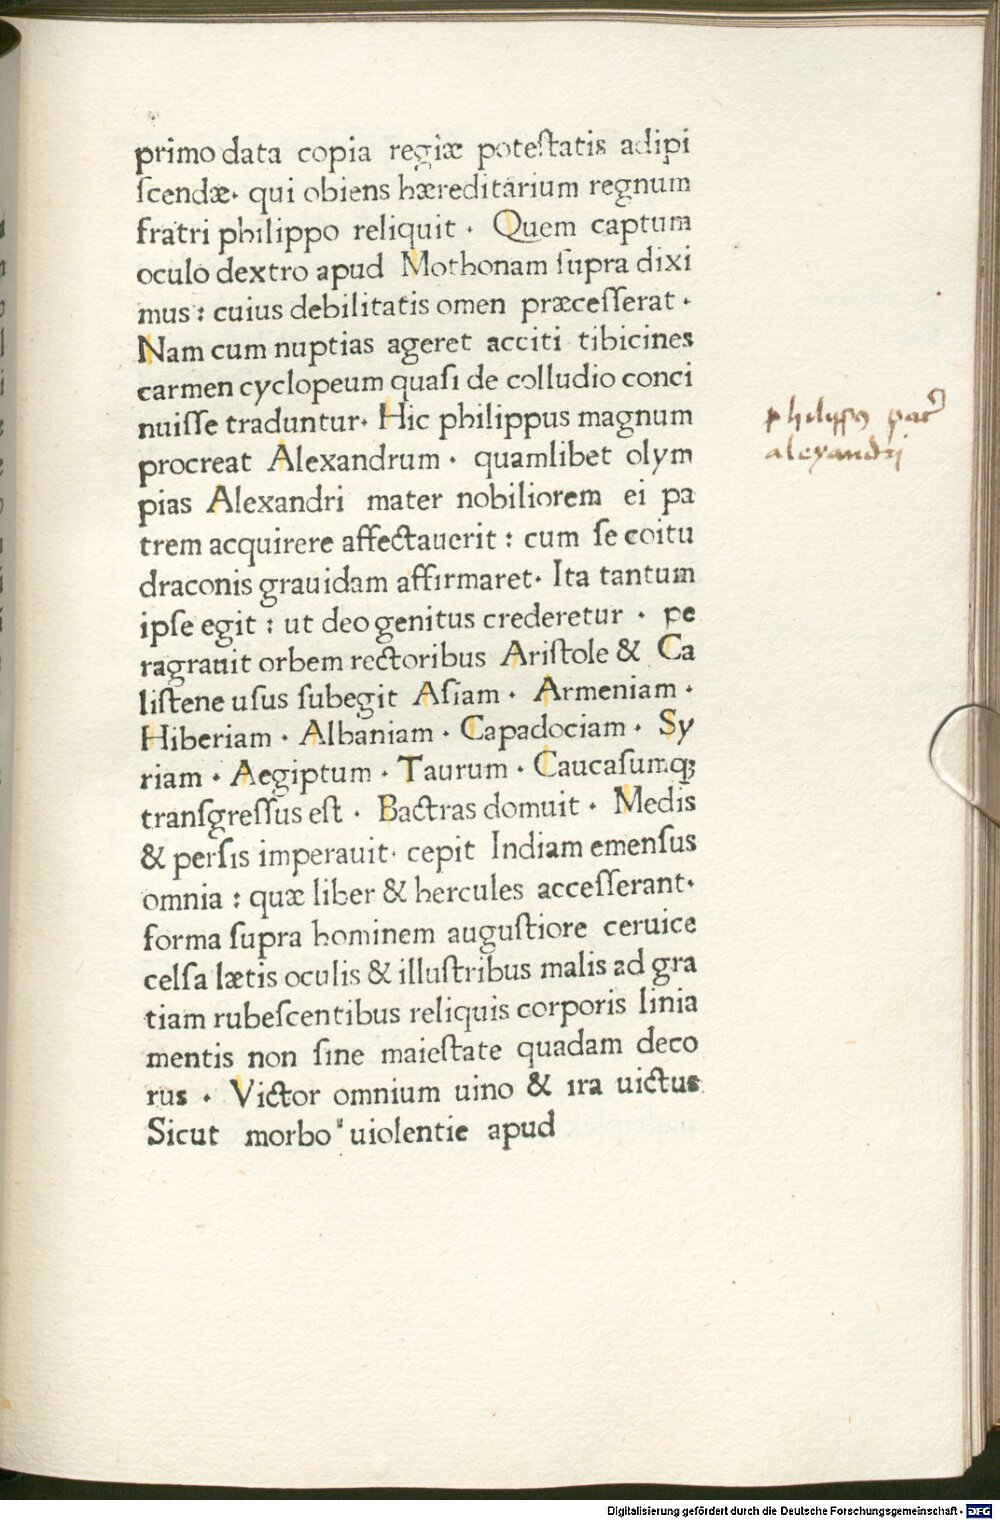 primo data copia regiæ poteſtatis adipi
ſcendæ· qui obiens hæreditarium regnum
fratri philippo reliquit · Quem captum
oculo dextro apud Mothonam ſupra dixi
mus : cuius debilitatis omen præceſſerat ·
Nam cum nuptias ageret acciti tibicines
carmen cyclopeum quaſi de colludio conci
nuiſſe traduntur· Hic philippus magnum
procreat Alexandrum · quamlibet olym
pias Alexandri mater nobiliorem ei pa
trem acquirere affectauerit : cum ſe coitu
draconis grauidam affirmaret· Ita tantum
ipſe egit : ut deo genitus crederetur · pe
ragrauit orbem rectoribus Ariſtole & Ca
liſtene uſus ſubegit Aſiam · Armeniam ·
Hiberiam · Albaniam · Capadociam · Sy
riam · Aegiptum · Taurum · Caucaſumqꝫ
tranſgreſſus eſt · Bactras domuit · Medis
& perſis imperauit· cepit Indiam emenſus
omnia : quæ liber & hercules acceſſerant·
forma ſupra hominem auguſtiore ceruice
celſa lætis oculis & illuſtribus malis ad gra
tiam rubeſcentibus reliquis corporis linia
mentis non ſine maieſtate quadam deco
rus · Victor omnium uino & ira uictus
Sicut morbo uiolentie apud
philippus pater
alexandri
Digitalisierung gefördert durch die Deutsche Forschungsgemeinschaft - DFG